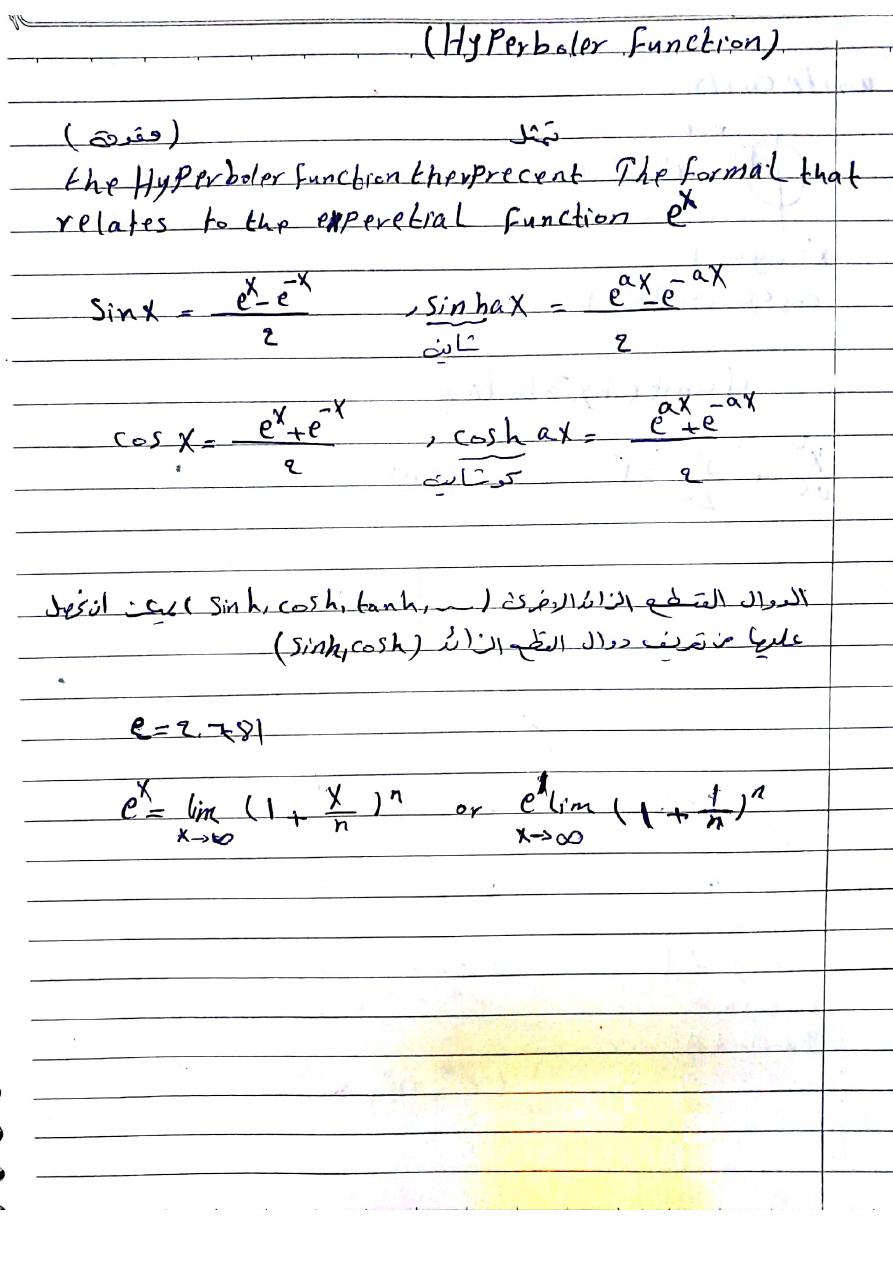 (Hyperboler function)
(مقدمة) تمثل
the Hyperboler function therprecent The formal that
relates to the experetial function e^x
Sinx = (e^x - e^-x)/2 , sinhax = (e^ax - e^-ax)/2
شاين
cos x = (e^x + e^-x)/2 , cosh ax = (e^ax + e^-ax)/2
كوشاين
الدوال القطع الزائد الاخرى (sinh, cosh, tanh, ...) يمكن ان نحصل
عليها من تعريف دوال القطع الزائد (sinh, cosh)
e = 2.781
e^x = lim x→∞ (1 + x/n)^n or e^1 lim x→∞ (1 + 1/n)^n